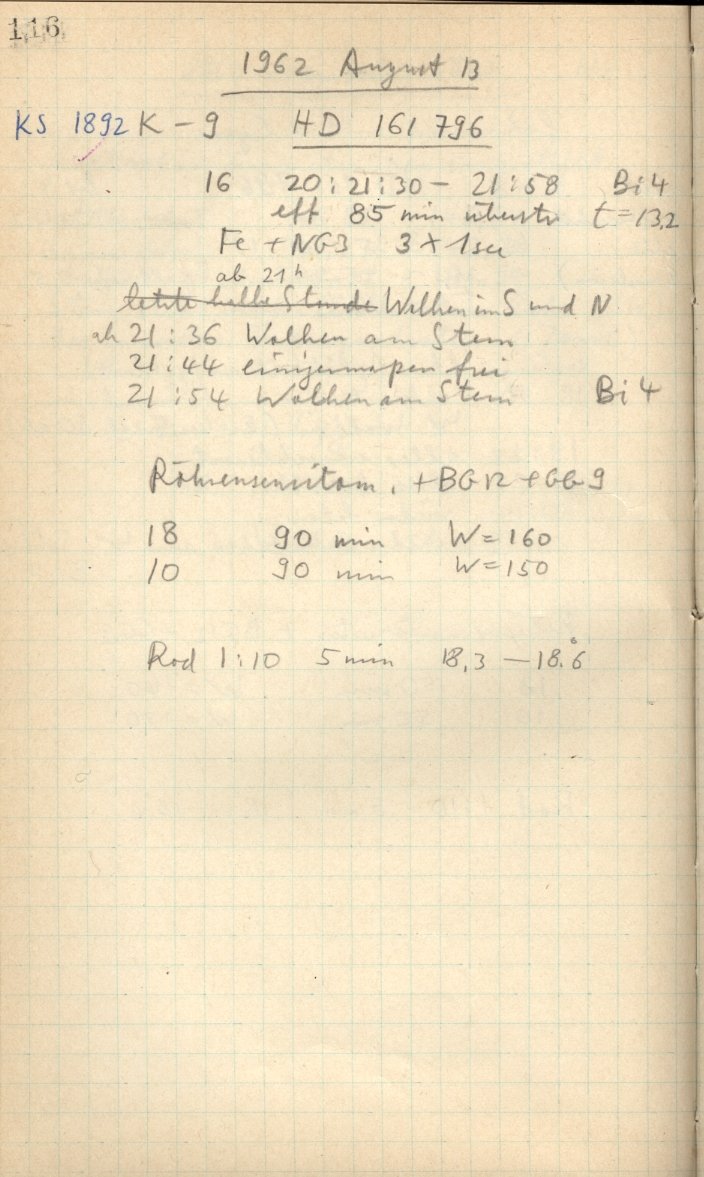 116
1962 August 13
KS 1892 K - 9 HD 161 796
16 20:21:30 - 21:58 Bi 4
eff 85 min überstr t = 13,2
Fe + NG3 3 × 1 sec
ab 21h
letzte halbe Stunde Wolken im S und N
ab 21:36 Wolken am Stern
21:44 einigermaßen frei
21:54 Wolken am Stern Bi 4
Röhrensensitom. + BG 12 + GG 9
18 90 min W = 160
10 90 min W = 150
Rod 1:10 5 min 18,3 — 18,°6